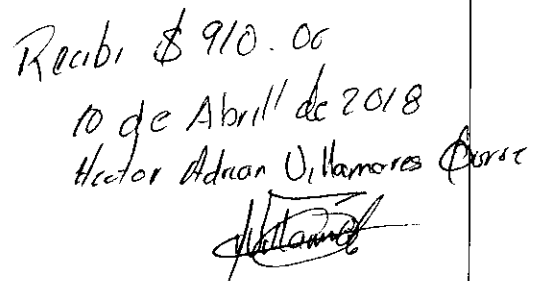 Recibi $ 910.00
10 de Abril de 2018
Hector Adrian Villamares